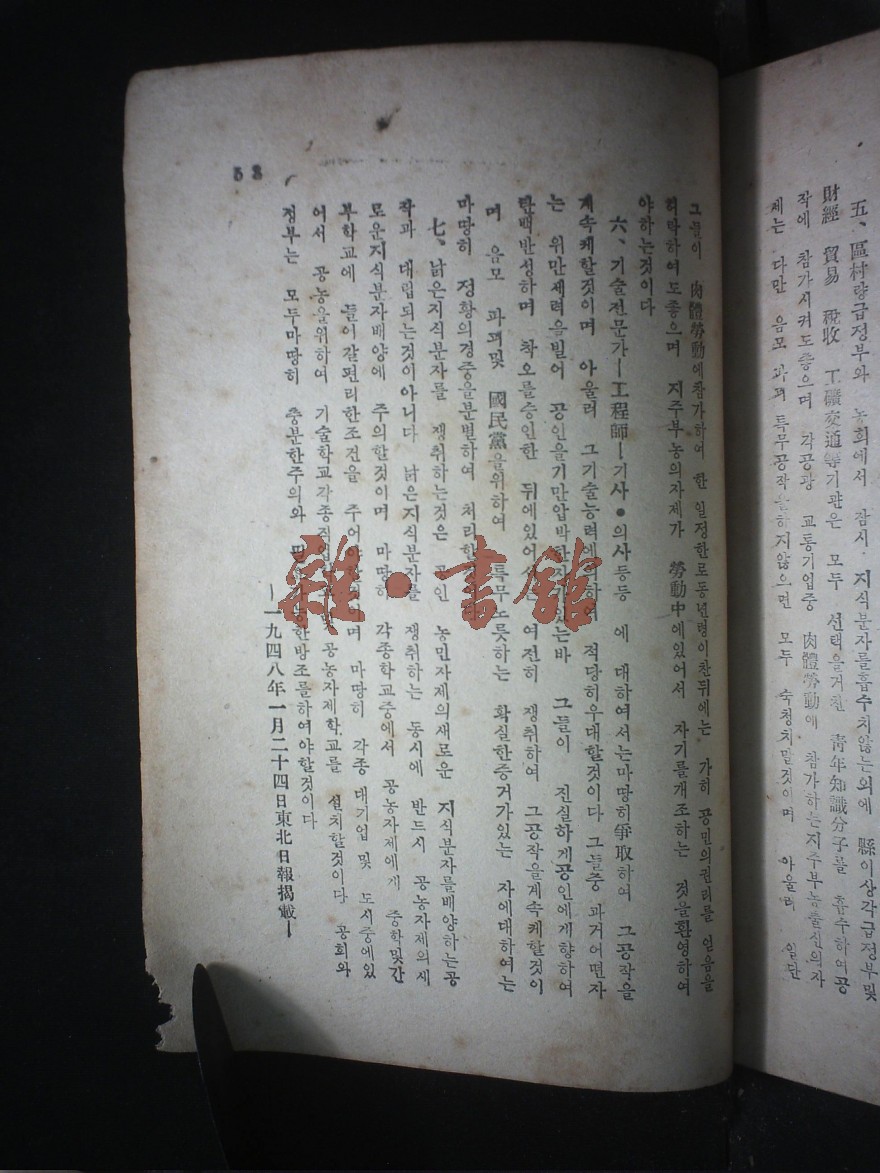 五、區村량급정부와 농회에서 잠시 지식분자를흡수치않는외에 縣이상각급정부및
財經 貿易 稅收 工礦交通等기관은 모두 선택을거친 靑年知識分子를 흡수하여공
작에 참가시켜도좋으며 각공광 교통기업중 肉體勞動에 참가하는지주부농출신의자
제는 다만 음모 파괴 특무공작을하지않으면 모두 숙청치말것이며 아울러 일단
그들이 肉體勞動에참가하여 한 일정한로동년령이찬뒤에는 가히 공민의권리를 얻음을
허락하여도좋으며 지주부농의자제가 勞動中에있어서 자기를개조하는 것을환영하여
야하는것이다
六、기술전문가—工程師—기사●의사등등 에 대하여서는마땅히爭取하여 그공작을
계속케할것이며 아울러 그기술능력에 적당히우대할것이다 그들중 과거어떤자
는 위만세력을빌어 공인을기만압박한 있는바 그들이 진실하게공인에게향하여
탄백반성하며 착오를승인한 뒤에있어서 여전히 쟁취하여 그공작을계속케할것이
며 음모 파괴및 國民黨을위하여 특무노릇하는 확실한증거가있는 자에대하여는
마땅히 정황의경중을분별하여 처리한
七、낡은지식분자를 쟁취하는것은 공인 농민자제의새로운 지식분자를배양하는공
작과 대립되는것이아니다 낡은지식분자를 쟁취하는 동시에 반드시 공농자제의새
로운지식분자배양에 주의할것이며 마땅히 각종학교중에서 공농자제에게 중학및간
부학교에 들어갈편리한조건을 주어야 마땅히 각종 대기업 및 도시중에있
어서 공농을위하여 기술학교각종직업 공농자제학교를 설치할것이다 공회와
정부는 모두마땅히 충분한주의와 가능한방조를하여야할것이다
—一九四八年一月二十四日東北日報揭載—
53
雞·書館